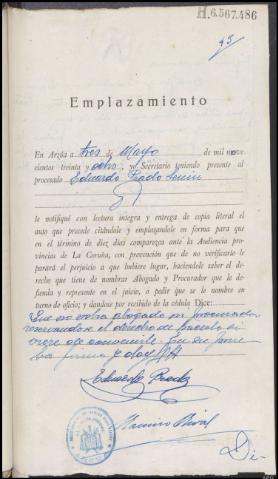 H.6.567.486
45
Emplazamiento
En Arzúa a tres de Mayo de mil nove-
cientos treinta y ocho, yo Secretario teniendo presente al
procesado Eduardo Prado
le notifiqué con lectura íntegra y entrega de copia literal el
auto que precede citándole y emplazándole en forma para que
en el término de diez días comparezca ante la Audiencia pro-
vincial de La Coruña, con prevención que de no verificarlo le
parará el perjuicio a que hubiere lugar, haciéndole saber el de-
recho que tiene de nombrar Abogado y Procurador que le de-
fienda y represente en el juicio, o pedir que se le nombre en
turno de oficio; y dándose por recibido de la cédula Dice:
Que no nombra abogado ni procurador
reservándose el derecho de hacerlo si
viere de
firma y doy fé
Eduardo Prado
Ramiro